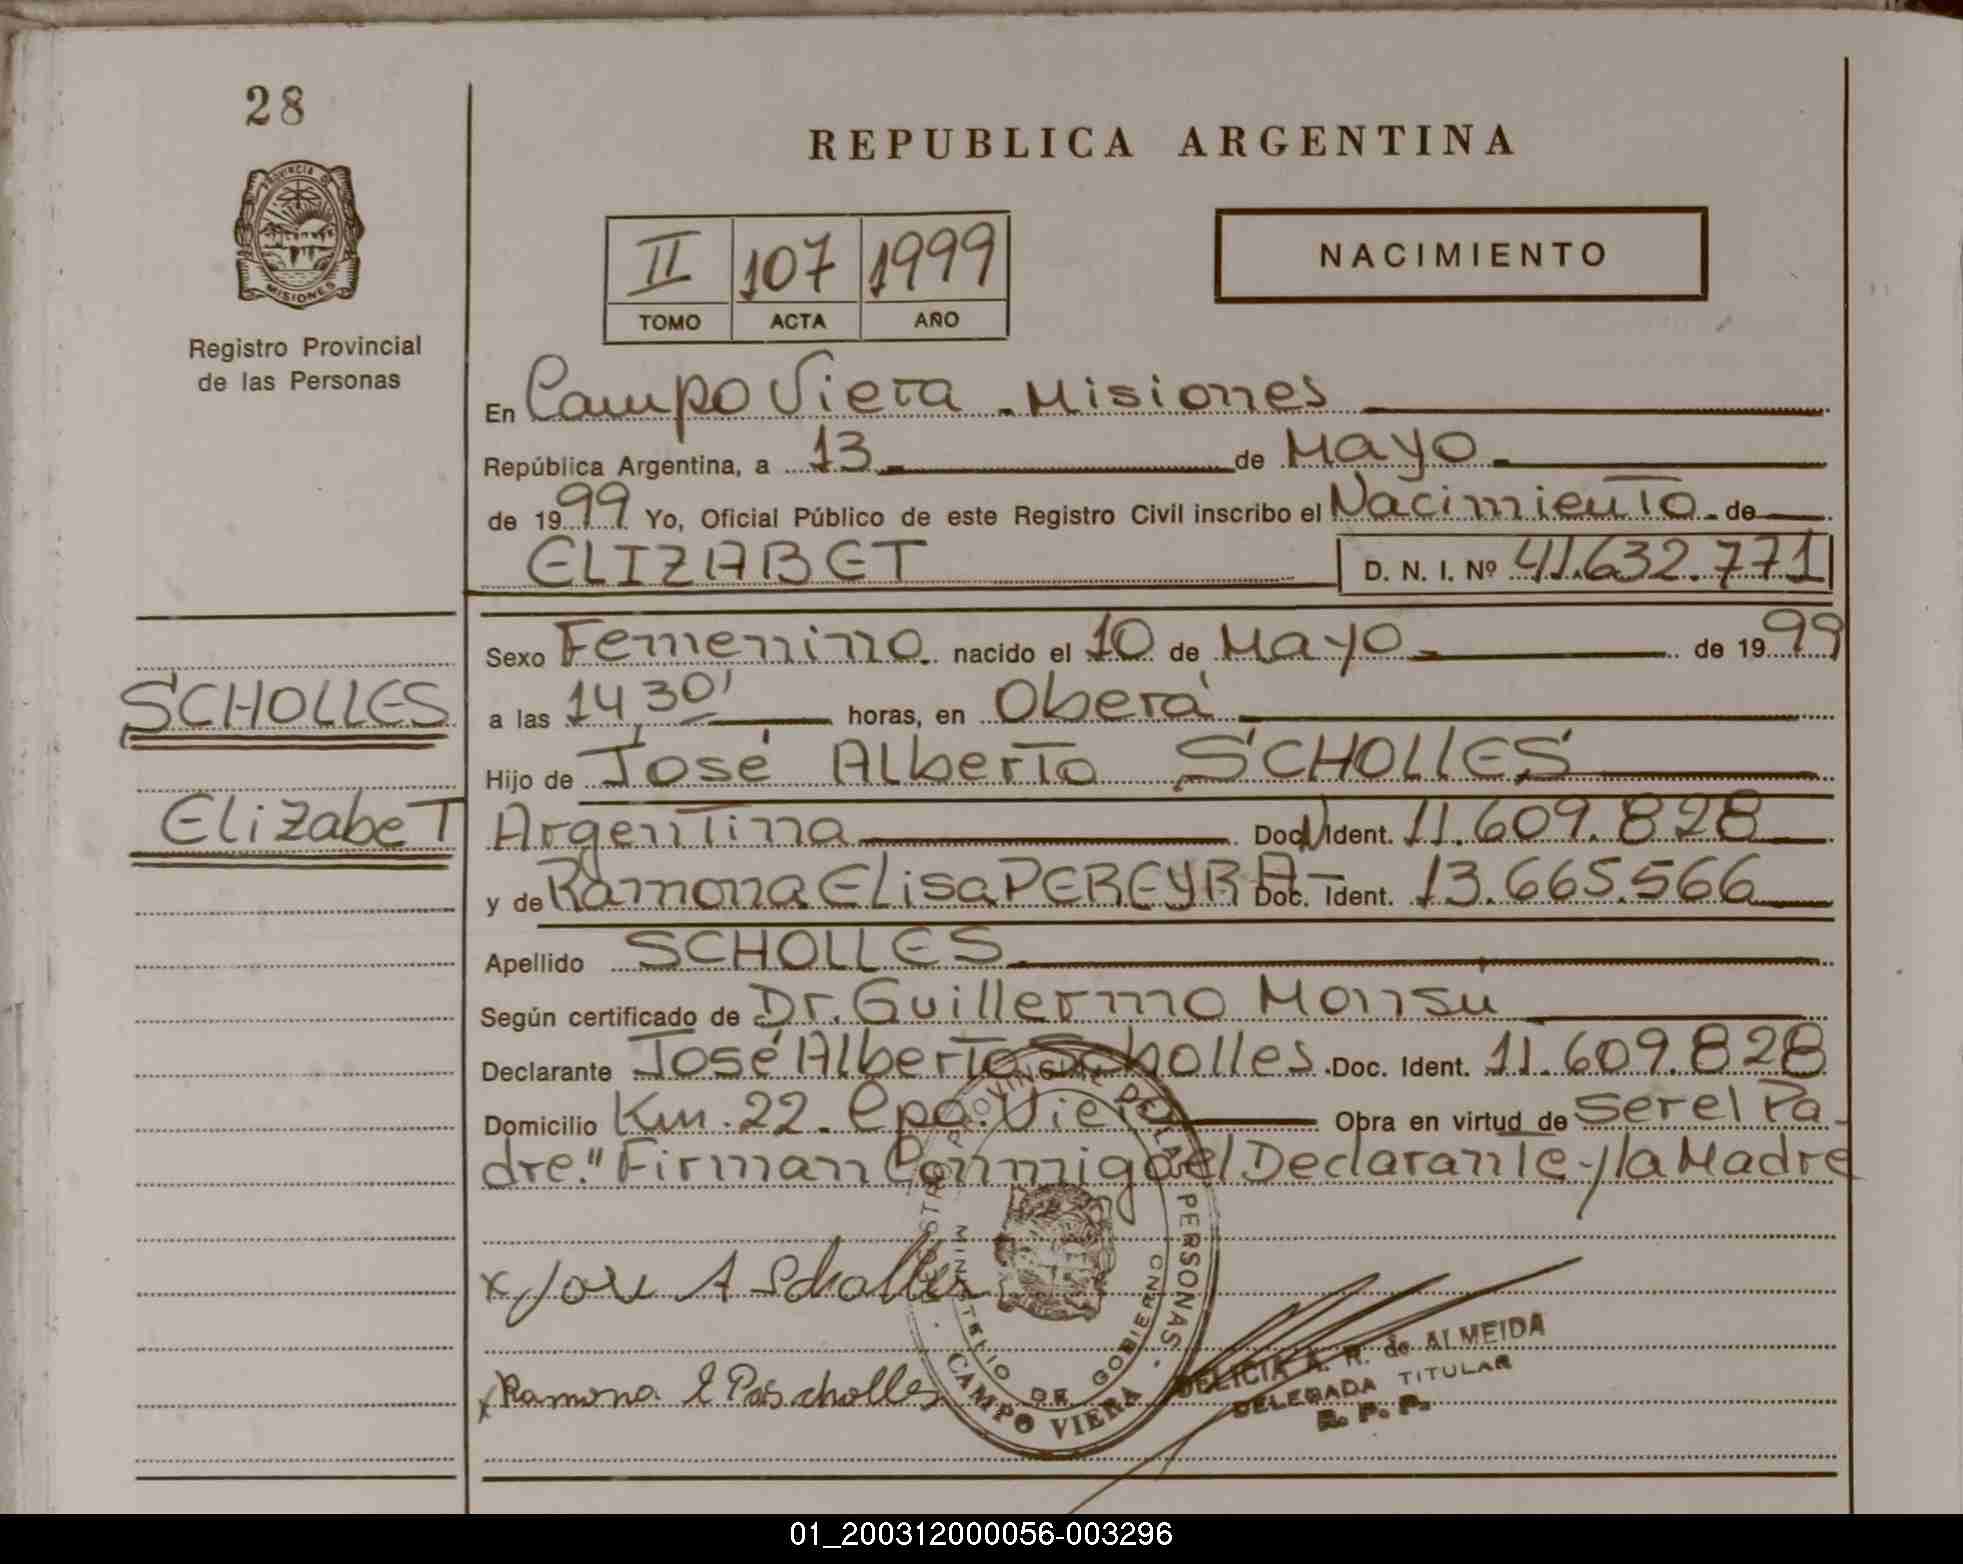 28
REPUBLICA ARGENTINA
PROVINCIA DE
MISIONES
Registro Provincial
de las Personas
II 107 1999
TOMO ACTA AÑO
NACIMIENTO
En Campo Viera - Misiones
República Argentina, a 13 de Mayo
de 1999 Yo, Oficial Público de este Registro Civil inscribo el Nacimiento de
ELIZABET D. N. I. Nº 41.632.771
Sexo Femenino. nacido el 10 de Mayo de 1999
SCHOLLES
a las 14,30' horas, en Oberá
Hijo de José Alberto SCHOLLES
Elizabet
Argentina Doc. Ident. 11.609.828
y de Ramona Elisa PEREYRA Doc. Ident. 13.665.566
Apellido SCHOLLES
Según certificado de Dr. Guillermo Monsu
Declarante José Alberto Scholles Doc. Ident. 11.609.828
Domicilio Km. 22 - Cpo. Viera Obra en virtud de ser el Pa-
dre." Firman Conmigo el Declarante y la Madre
x José A Scholles
x Ramona E P Scholles
REGISTRO PROVINCIAL DE LAS PERSONAS
MINISTERIO DE GOBIERNO
CAMPO VIERA
DELICIA A. R. de ALMEIDA
DELEGADA TITULAR
R. P. P.
01_200312000056-003296